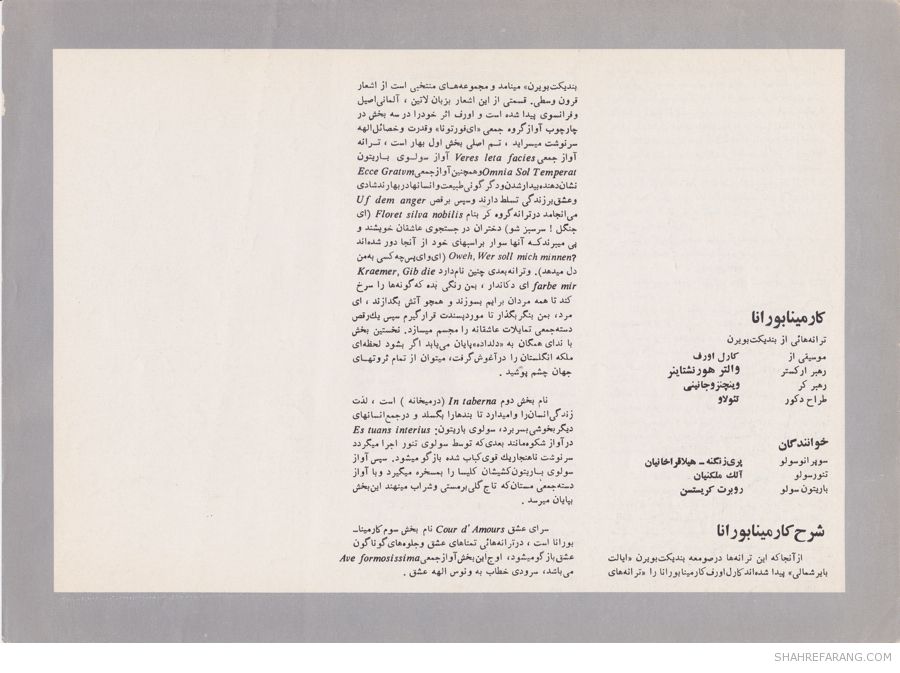 کارمینابورانا
ترانه‌هائی از بندیکت‌بویرن
موسیقی از کارل اورف
رهبر ارکستر والتر هورنشتاینر
رهبر کر وینچنزوجانینی
طراح دکور تئولاو
خوانندگان
سوپرانوسولو پری‌زنگنه ـ هیلاقراخانیان
تنورسولو آلك ملکنیان
باریتون سولو روبرت کریستسن
شرح کارمینابورانا
ازآنجاکه این ترانه‌ها درصومعه بندیکت‌بویرن «ایالت
بایرشمالی» پیدا شده‌اندکارل‌اورف‌کارمینابورانا را «ترانه‌های
بندیکت‌بویرن» مینامد و مجموعه‌های منتخبی است از اشعار
قرون وسطی. قسمتی از این اشعار بزبان لاتین ، آلمانی‌اصیل
وفرانسوی پیدا شده است و اورف اثر خودرا در سه بخش در
چارچوب آوازگروه جمعی «ای‌فورتونا» وقدرت وخصائل‌الهه
سرنوشت میسراید ، تم اصلی بخش اول بهار است ، ترانه
آواز جمعی Veres leta facies آواز سولوی باریتون
Omnia Sol Temperat وهمچنین‌آوازجمعی Ecce Gratvm
نشان‌دهنده‌بیدارشدن‌ودگرگونی‌طبیعت‌وانسانهادربهارندشادی
وعشق‌برزندگی تسلط دارند وسپس برقص Uf dem anger
می‌انجامد درترانه‌گروه کر بنام Floret silva nobilis (ای
جنگل ! سرسبز شو) دختران در جستجوی عاشقان خویشند و
پی میبرندکه آنها سوار براسبهای خود از آنجا دور شده‌اند
Oweh, Wer soll mich minnen? (ای‌وای‌پس‌چه‌کسی به‌من
دل میدهد). وترانه‌بعدی چنین نام‌دارد Kraemer, Gib die
farbe mir ای دکاندار ، بمن رنگی بده که‌گونه‌ها را سرخ
کند تا همه مردان برایم بسوزند و همچو آتش بگدازند ، ای
مرد، بمن بنگربگذار تا موردپسندت قرارگیرم سپس یك‌رقص
دسته‌جمعی تمایلات عاشقانه را مجسم میسازد. نخستین بخش
با ندای همگان به «دلداده»پایان می‌یابد اگر بشود لحظه‌ای
ملکه انگلستان را درآغوش‌گرفت، میتوان از تمام ثروتهای
جهان چشم پوشید .
نام بخش دوم In taberna (درمیخانه ) است ، لذت
زندگی‌انسان‌را وامیدارد تا بندهارا بگسلد و درجمع‌انسانهای
دیگربخوشی‌بسربرد، سولوی باریتون: Es tuans interius
درآواز شکوه‌مانند بعدی‌که توسط سولوی تنور اجرا میگردد
سرنوشت ناهنجاریك قوی‌کباب شده بازگو میشود. سپس‌آواز
سولوی باریتون‌کشیشان کلیسا را بمسخره میگیرد وبا آواز
دسته‌جمعی مستان‌که تاج گلی‌برمستی وشراب مینهند این‌بخش
بپایان میرسد .
سرای عشق Cour d' Amours نام بخش سوم‌کارمینا-
بورانا است ، درترانه‌هائی تمناهای عشق وجلوه‌های‌گوناگون
عشق‌بازگومیشود، اوج‌این‌بخش‌آوازجمعی Ave formosissima
می‌باشد، سرودی خطاب به ونوس الهه عشق .
SHAHREFARANG.COM